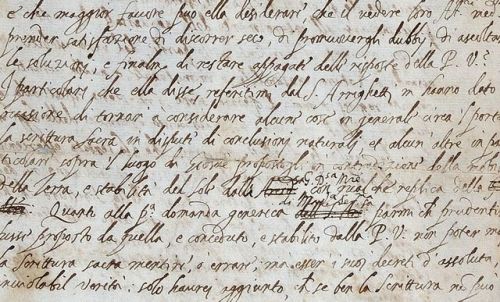 e che maggior favore può ella desiderare, che il vedere loro Al.
prender satisfazione di discorrer seco, di promuovergli dubbi, di ascoltar
le soluzioni, e finalm. di restare appagate delle risposte della P. V.
I particolari che ella disse referitimi dal S. Arrighetti m' hanno dato
occasione di tornar à considerare alcune cose in generale circa 'l port
la scrittura sacra in dispute di conclusioni naturali, et alcun altre in pa
ticolare sopra 'l luogo di Giosuè propostogli in contradizione della mobi
della Terra, e stabilità del sole dalla con qualche replica della
Quanto alla p.a domanda generica di parmi che prudenti
fusse proposto da quella e conceduto, e stabilito dalla P. V. non poter ma
la scrittura sacra mentire ò errare, ma esser i suoi decreti d'assoluta
inviolabil verità: solo haurei aggiunto, che se ben la scrittura non può